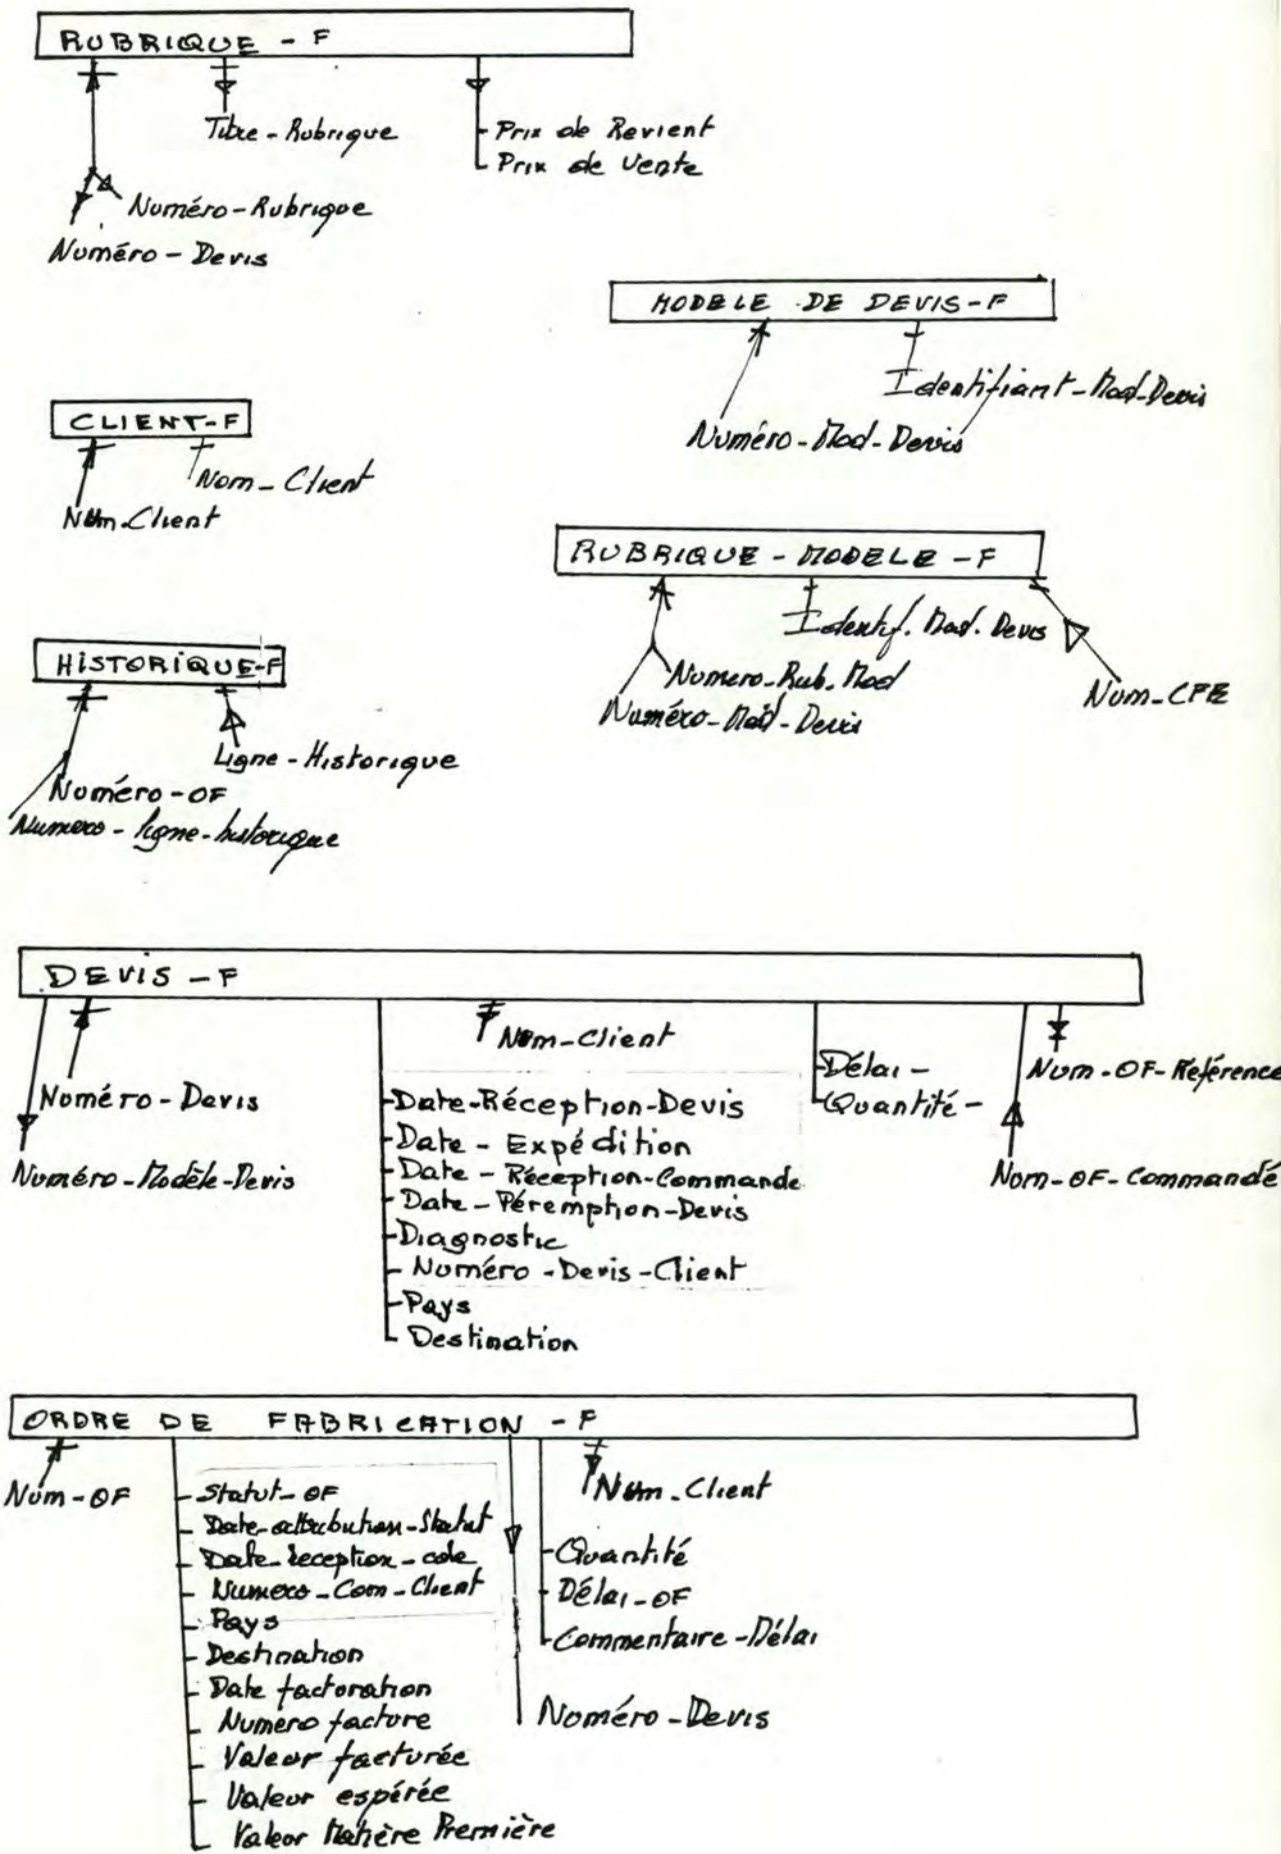 RUBRIQUE - F
Titre - Rubrique
Prix de Revient
Prix de Vente
Numéro - Rubrique
Numéro - Devis
MODELE DE DEVIS - F
Identifiant - Mod - Devis
Numéro - Mod - Devis
CLIENT - F
Nom - Client
Num - Client
RUBRIQUE - MODELE - F
Identif. Mod. Devis
Numero - Rub. Mod
Numéro - Mod - Devis
Num - CFE
HISTORIQUE - F
Ligne - Historique
Numéro - OF
Numero - ligne - historique
DEVIS - F
Num - Client
Numéro - Devis
Numéro - Modèle - Devis
Date - Réception - Devis
Date - Expédition
Date - Réception - Commande
Date - Péremption - Devis
Diagnostic
Numéro - Devis - Client
Pays
Destination
Délai -
Quantité -
Num - OF - Référence
Num - OF - Commandé
ORDRE DE FABRICATION - F
Num - OF
Statut - OF
Date - attribution - Statut
Date - reception - cde
Numero - Com - Client
Pays
Destination
Date facturation
Numero facture
Valeur facturée
Valeur espérée
Valeur Matière Première
Num - Client
Quantité
Délai - OF
Commentaire - Délai
Numéro - Devis